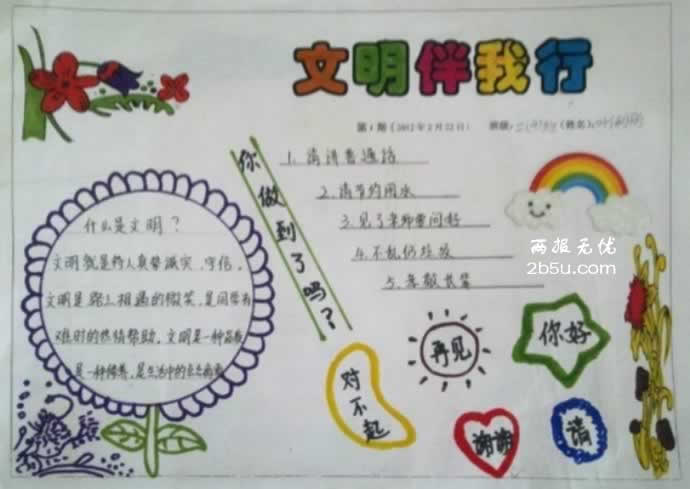 文明伴我行
第1期（2012年2月22日） 班级： （姓名）：
你做到了吗？
1.请讲普通话
2.请节约用水
3.见了老师要问好
4.不乱仍垃圾
5.尊敬长辈
什么是文明？
文明就是待人真挚诚实、守信，
文明是路上相遇的微笑，是同学有
难时的热情帮助。文明是一种品质
是一种修养，是生活中的点点滴滴
两报无优
2b5u.com
再见
你好
对不起
谢谢
请